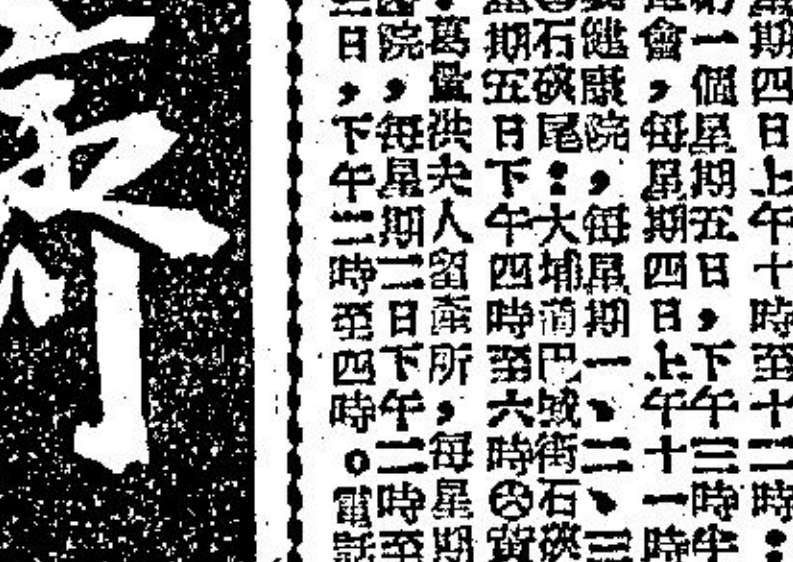 星期四日上午十時至十二時：
一個星期五日，下午三時半
會，每星期四日，上午十一時
健康院，每星期一、二、三
石硤尾：大埔道巴域街石硤
期五日下午四時至六時
葛量洪夫人留產所，每星期
院，每星期二日下午二時至
日，下午二時至四時。電話